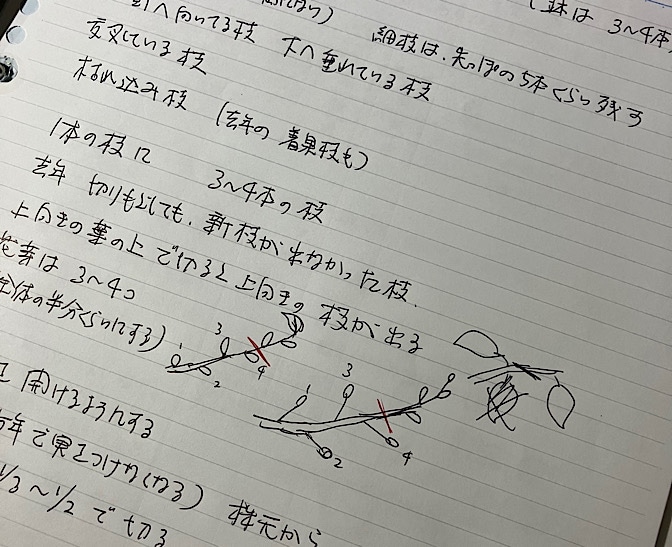 向いてる枝 下へ垂れている枝 細枝は、先っぽの5本くらい残す
鉢は 3〜4本
交叉している枝
枯れ込み枝 (去年の着果枝も)
1本の枝に 3〜4本の枝
去年 切りもどしても、新枝が出なかった枝.
上向きの葉の上で切ると上向きの 枝が出る
花芽は 3〜4つ
全体の半分くらいにする)
1 2 3 4
1 2 3 4
開けるようにする
年で実をつけなくなる) 株元から
1/3〜1/2で切る